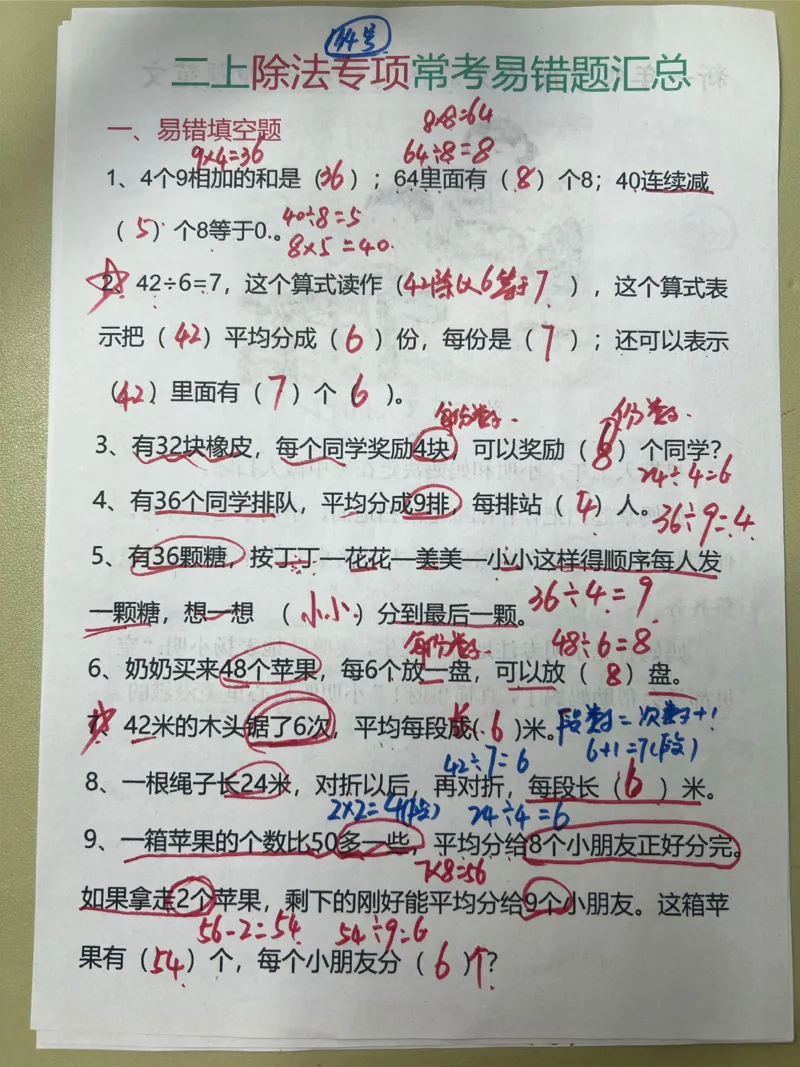 34号
二上除法专项常考易错题汇总
8×8=64
一、易错填空题
9×4=36 64÷8=8
1、4个9相加的和是（36）；64里面有（8）个8；40连续减
（5）个8等于0.。 40÷8=5
8×5=40.
2、42÷6=7，这个算式读作（42除以6等于7），这个算式表
示把（42）平均分成（6）份，每份是（7）；还可以表示
（42）里面有（7）个（6）。
每份数. 份数.
3、有32块橡皮，每个同学奖励4块，可以奖励（8）个同学？
24÷4=6
4、有36个同学排队，平均分成9排，每排站（4）人。 36÷9=4
5、有36颗糖，按丁丁—花花—美美—小小这样得顺序每人发
一颗糖，想一想 （小小）分到最后一颗。 36÷4=9
每份数. 48÷6=8
6、奶奶买来48个苹果，每6个放一盘，可以放（8）盘。
7、42米的木头锯了6次，平均每段成长(6)米。段数=次数+1
42÷7=6 6+1=7(段)
8、一根绳子长24米，对折以后，再对折，每段长（6）米。
2×2=4(段) 24÷4=6
9、一箱苹果的个数比50多一些，平均分给8个小朋友正好分完。
7×8=56
如果拿走2个苹果，剩下的刚好能平均分给9个小朋友。这箱苹
56-2=54 54÷9=6
果有（54）个，每个小朋友分（6）个？